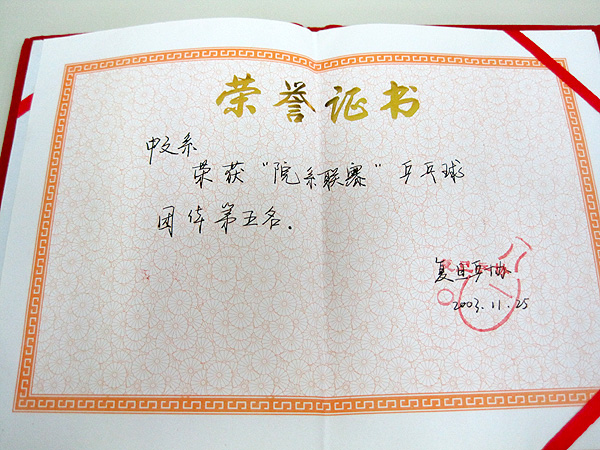 荣誉证书
中文系
荣获“院系联赛”乒乓球
团体第五名.
复旦乒协
2003.11.25